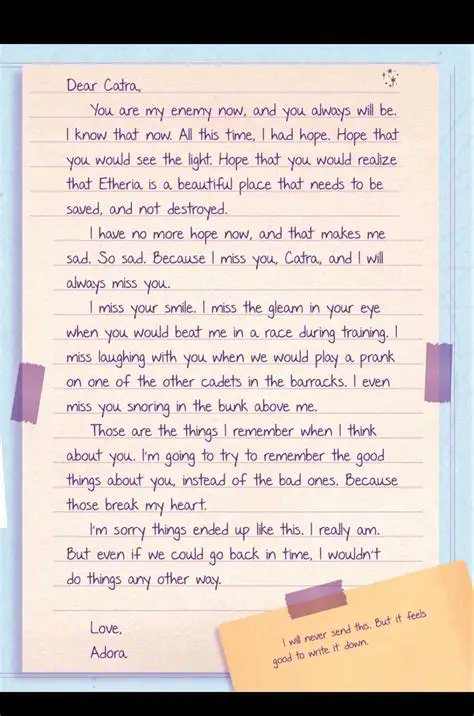 Dear Catra,
You are my enemy now, and you always will be.
I know that now. All this time, I had hope. Hope that
you would see the light. Hope that you would realize
that Etheria is a beautiful place that needs to be
saved, and not destroyed.
I have no more hope now, and that makes me
sad. So sad. Because I miss you, Catra, and I will
always miss you.
I miss your smile. I miss the gleam in your eye
when you would beat me in a race during training. I
miss laughing with you when we would play a prank
on one of the other cadets in the barracks. I even
miss you snoring in the bunk above me.
Those are the things I remember when I think
about you. I'm going to try to remember the good
things about you, instead of the bad ones. Because
those break my heart.
I'm sorry things ended up like this. I really am.
But even if we could go back in time, I wouldn't
do things any other way.
Love,
Adora
I will never send this. But it feels
good to write it down.